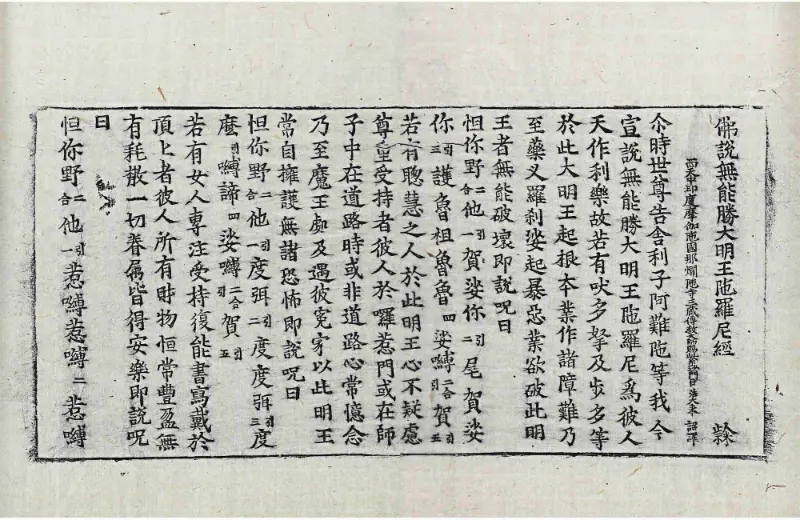 佛說無能勝大明王陁羅尼經
西天中印度摩伽陁國那爛陁寺三藏傳教大師賜紫沙門臣法天奉 詔譯
尒時世尊告舍利子阿難陁等我今
宣說無能勝大明王陁羅尼爲彼人
天作利樂故若有吠多拏及步多等
於此大明王起根本業作諸障難乃
至藥叉羅刹娑起暴惡業欲破此明
王者無能破壞即說呪曰
怛你野二合他一引賀娑你二尾賀娑
你三護魯祖魯魯四娑嚩二合賀引五
若有聰慧之人於此明王心不疑慮
尊重受持者彼人於囉惹門或在師
子中在道路時或非道路心常憶念
乃至魔王處及遇彼冤家以此明王
常自擁護無諸恐怖即說呪曰
怛你野二合他一引度弭二度度弭三度
麽引嚩諦四娑嚩二合引賀引五
若有女人專注受持復能書寫戴於
頂上者彼人所有財物恒常豐盈無
有耗散一切眷屬皆得安樂即說呪
曰
怛你野二合他一引惹嚩惹嚩二惹嚩